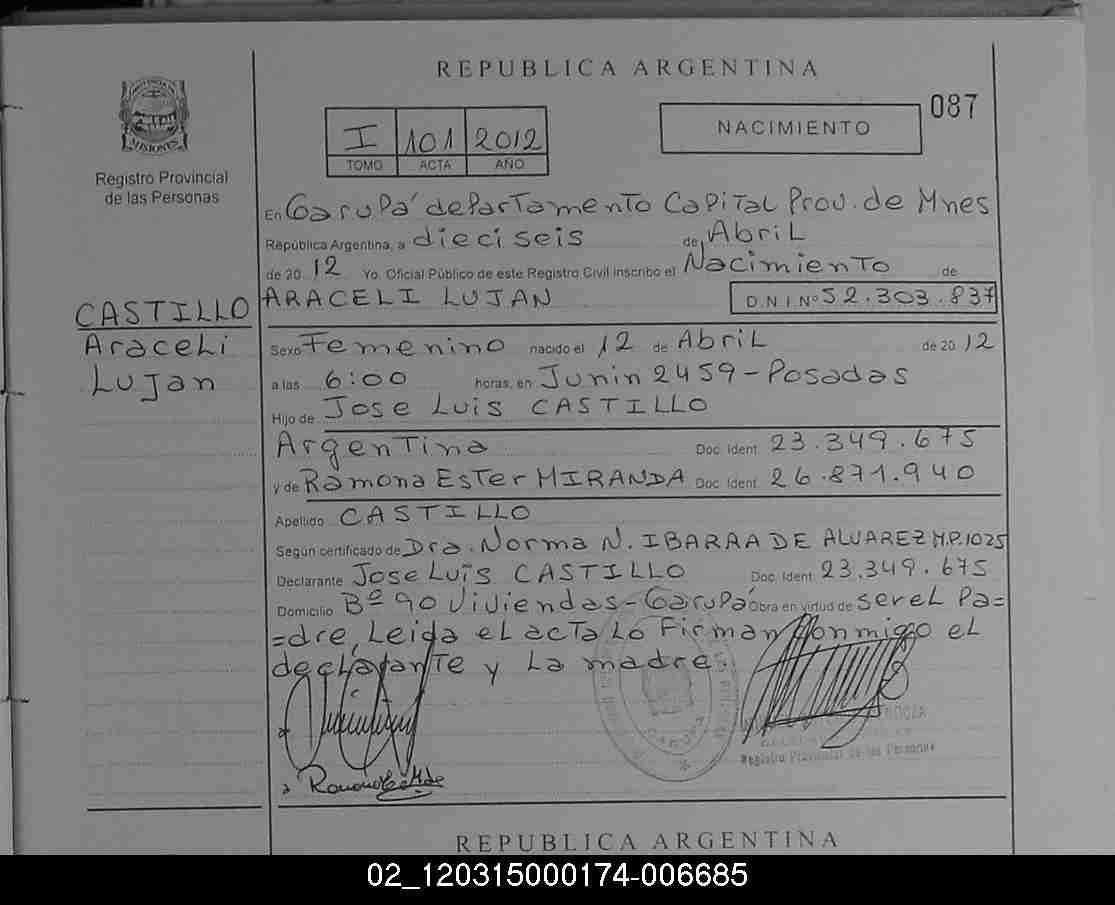 REPUBLICA ARGENTINA
PROVINCIA DE
MISIONES
Registro Provincial
de las Personas
I 101 2012
TOMO ACTA AÑO
NACIMIENTO
087
En Garupá departamento Capital Prov. de Mnes
República Argentina, a dieciseis de Abril
de 20 12 Yo. Oficial Público de este Registro Civil inscribo el Nacimiento de
ARACELI LUJAN D.N.I.Nº 52.303.837
CASTILLO
Araceli
Lujan
Sexo Femenino nacido el 12 de Abril de 20 12
a las 6:00 horas, en Junin 2459-Posadas
Hijo de Jose Luis CASTILLO
Argentina Doc. Ident. 23.349.675
y de Ramona Ester MIRANDA Doc. Ident. 26.871.940
Apellido CASTILLO
Según certificado de Dra. Norma N. IBARRA DE ALVAREZ M.P.1025
Declarante Jose Luis CASTILLO Doc. Ident. 23.349.675
Domicilio Bº 90 Viviendas-Garupá Obra en virtud de ser el Pa=
=dre, Leida el acta lo firman conmigo el
declarante y la madre.
GARUPA
Registro Provincial de las Personas
REPUBLICA ARGENTINA
02_120315000174-006685